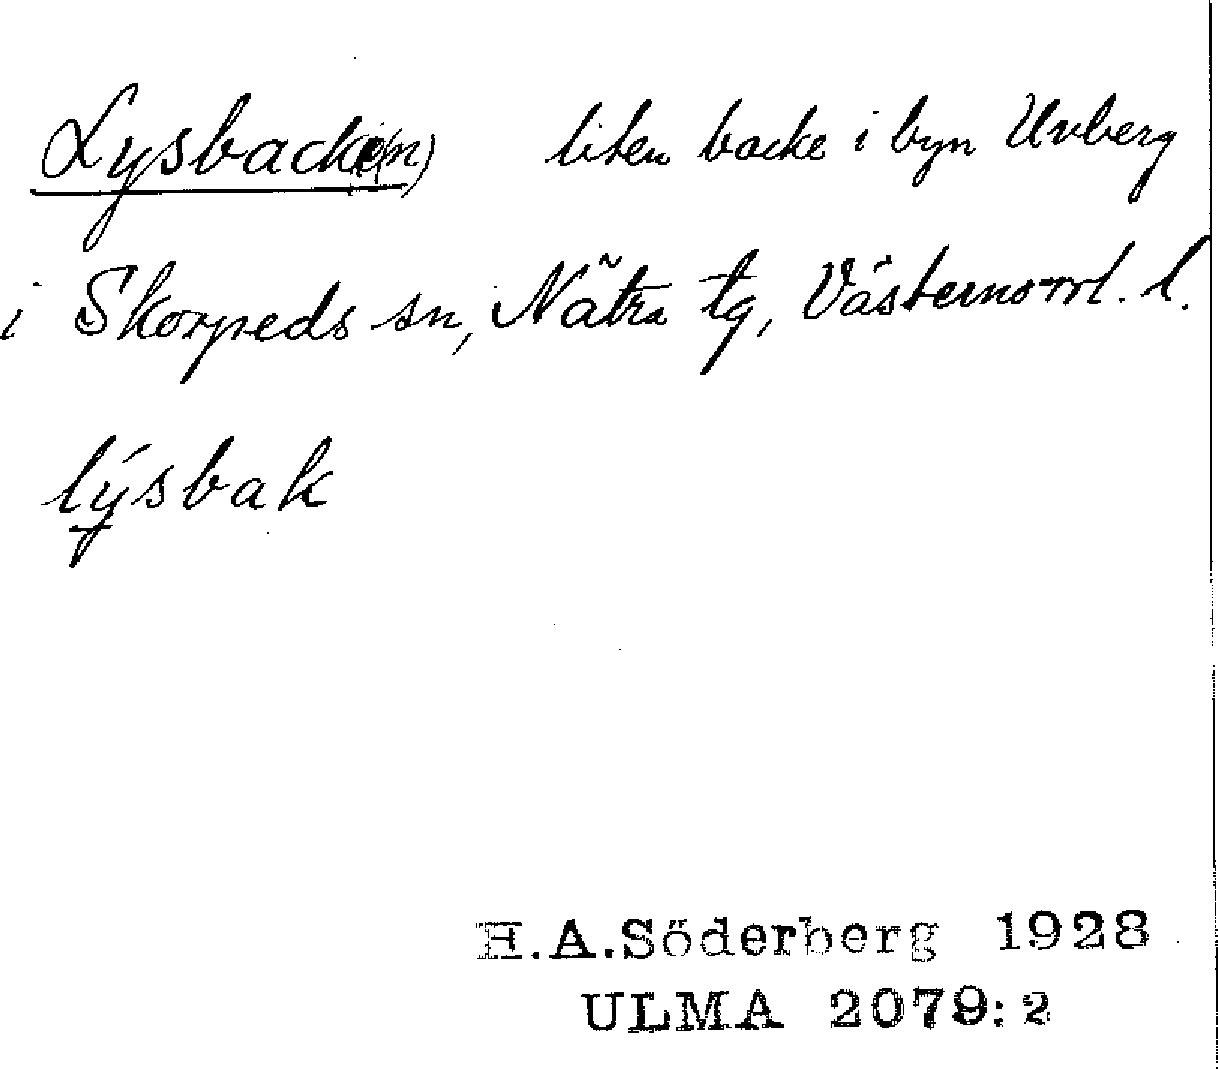 Lysbacke(n) liten backe i byn Uvberg
i Skorpeds sn, Nätra tg, Västernorrl. l.
lýsbak
H.A.Söderberg 1928
ULMA 2079:2